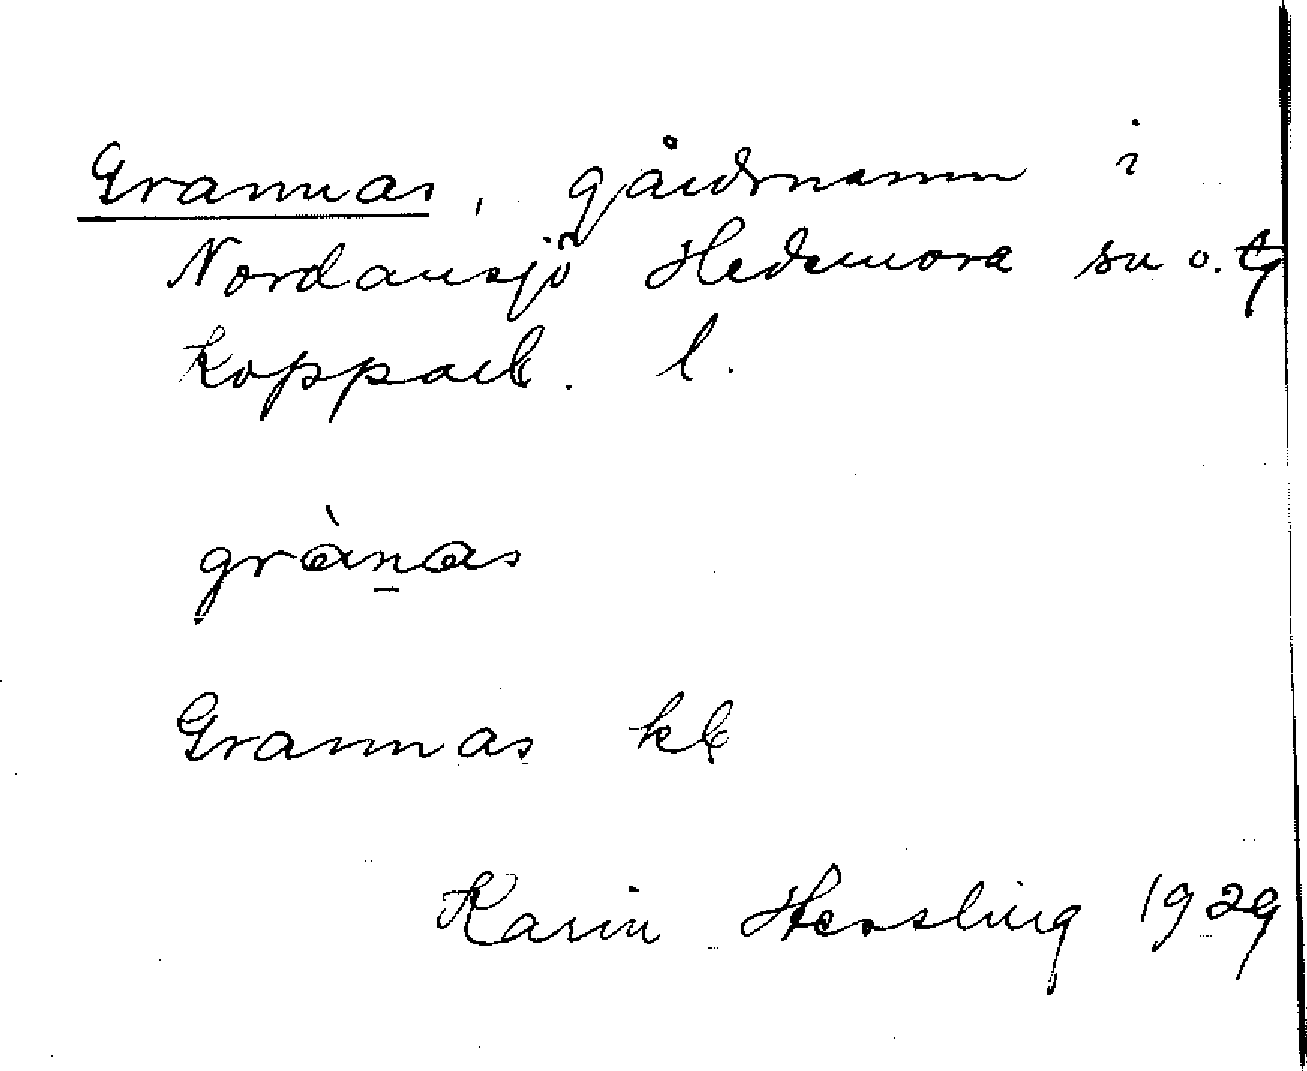 Grannas, gårdsnamn i
Nordansjö Hedemora sn o. tg
Kopparb. l.
grànas
Grannas kb
Karin Hessling 1929